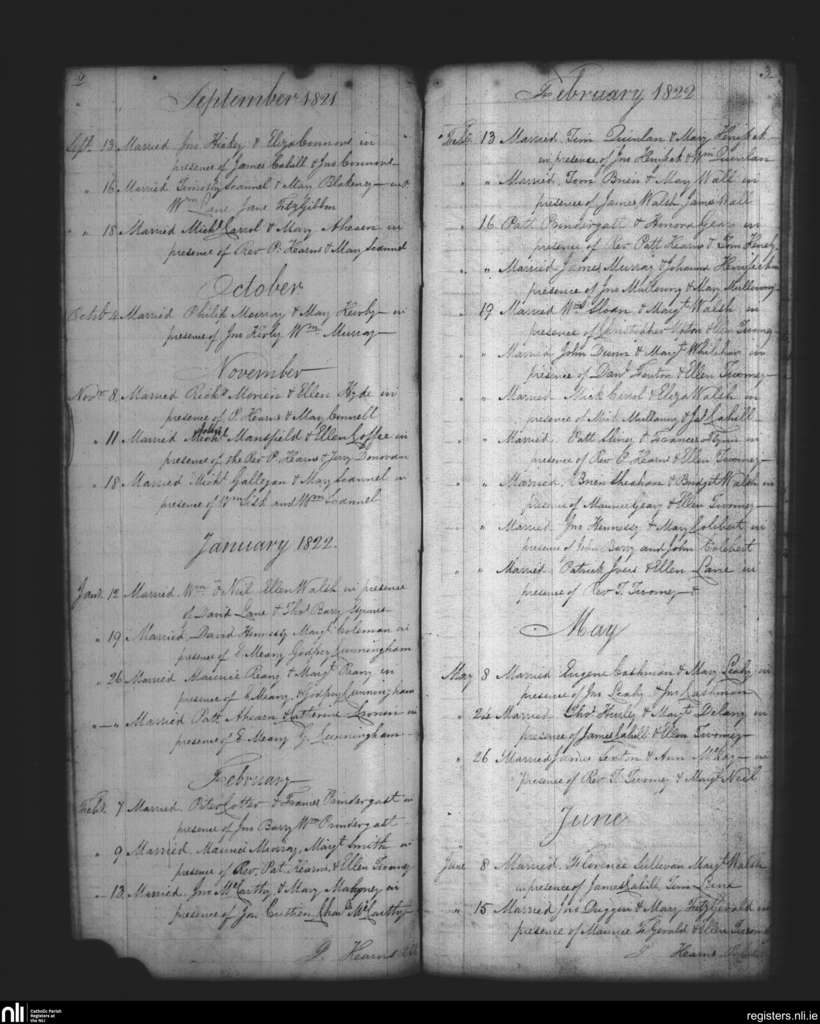 2
September 1821
Sept. 13 Married Jno Hickey & Eliza Connors in
presence of James Cahill & Jno Connors
" 16 Married Timothy Scannel & Mary Blakeney
Wm Lane Jane FitzGibbon
" " 18 Married Michl Carrol & Mary Ahearn in
presence of Rev P. Hearns & Mary Scannel
October
Octob 4 Married Philip Murray & Mary Kirby in
presence of Jno Kirby Wm Murray
November
Novr 8 Married Richd & Ellen Hyde in
presence of P. Hearns & Mary Connell
" 11 Married Mansfield & Ellen Coffee in
presence of the Rev P. Hearns & Jerry Donovan
" 18 Married Michl Gallegan & Mary Scannel in
presence of Wm and Wm Scannel
January 1822.
Jany. 12 Married Wm O Neil Ellen Walsh in presence
of David Lane & Thos Barry
" 19 Married David Hennessy Margt Coleman in
presence of E Meany Godfrey Cunningham
" 26 Married Maurice Reany & Margt Reany in
presence of E Meany & Godfrey Cunningham
" — " Married Patk Ahearn & Catherine Cronen in
presence of E Meany G. Cunningham
February
Feb. 7 Married Peter Cotter & Frances Prindergast in
presence of Jno Barry Wm Prindergast
" 9 Married Maurice Murray Margt Smith in
presence of Rev. Pat. Hearns, & Ellen Twomey
" 13 Married Jno McCarthy & Mary Mahoney in
presence of Jas. Chas McCarthy
P. Hearns
3
February 1822
" Feb. 13 Married Tim Quinlan & Mary
in presence of Jno & Wm Quinlan
" " Married Tom Brien & Mary Wall in
presence of James Walsh James Wall
" 16 Patk Prindergast & Honora Geary in
presence of Rev Patt Hearns & Tom
" " Married James Murray & Johanna
presence of Jno & Mary
" 19 Married Wm Sloan & Margt Walsh in
presence of Christopher & Ellen Twomey
" " Married John Dunn & Margt in
presence of Danl & Ellen Twomey
" " Married Mick Carrol & Eliza Walsh in
presence of Mick & Jas Cahill
" " Married Patt & Frances Flynn in
presence of Rev P. Hearns & Ellen Twomey
" " Married, Brien Sheahan & Bridget Walsh in
presence of Maurice Geary & Ellen Twomey
" " Married Jno Hennessy & Mary Colebert in
presence of John Barry and John Colebert
" " Married Patrick & Ellen Lane in
presence of Rev T. Twomey
May
May 8 Married Eugene Cashman & Mary Leahy in
presence of Jno Leahy & Jno Cashman
" 24 Married Chrs Hurley & Margt Delany in
presence of James Cahill & Ellen Twomey
" 26 Married James Sexton & Ann in
presence of Rev T. Twomey & Margt Neil
June
June 8 Married Florence Sullivan Margt Walsh
in presence of James Cahill Tim
" 15 Married Jno Duggin & Mary FitzGerald in
presence of Maurice FzGerald & Ellen
Hearns
nli
Catholic Parish
Registers at
the NLI
registers.nli.ie